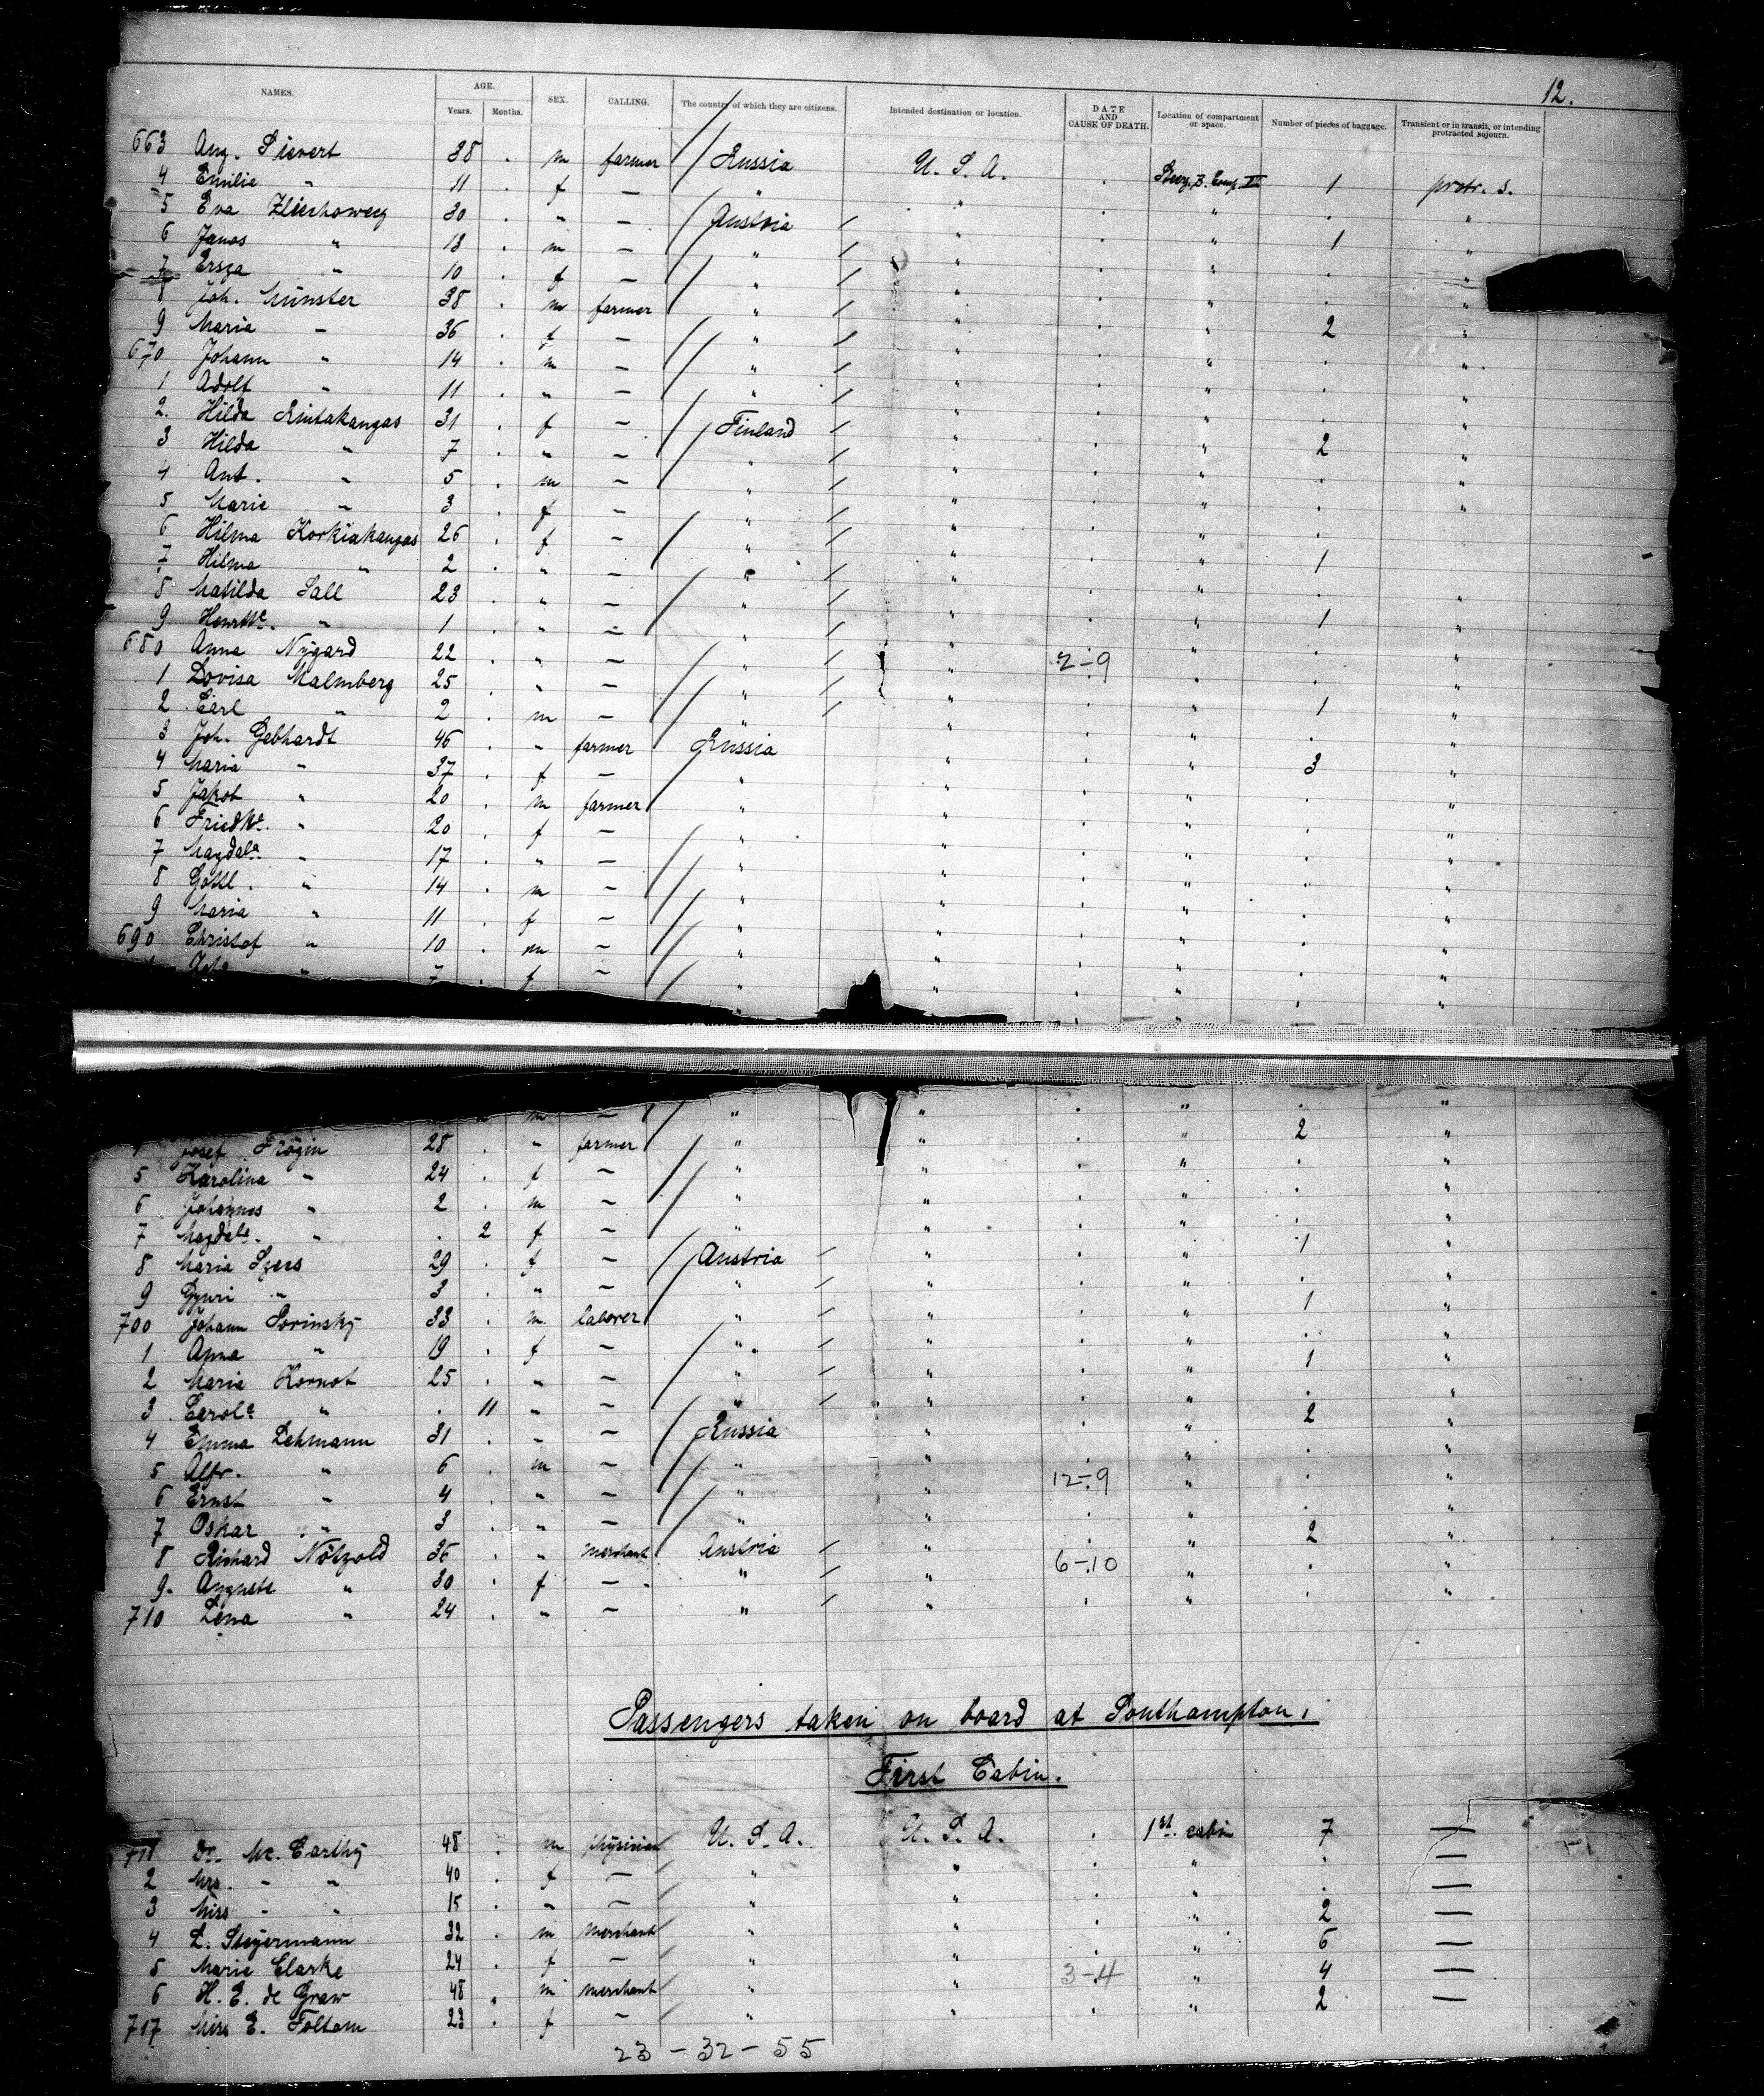 12.
NAMES. AGE. SEX. CALLING. The country of which they are citizens. Intended destination or location. DATE AND CAUSE OF DEATH. Location of compartment or space. Number of pieces of baggage. Transient or in transit, or intending protracted sojourn.
Years. Months.
663 Aug. Sievert 38 . m farmer Russia U. S. A. . 1 protr. s.
4 Emilie " 11 . f — " " . " . "
5 Eva 30 . " — Austria " . " 1 "
6 Janos " 13 . m — " " . " . "
7 Ersza " 10 . f — " " . " . "
8 Joh. Münster 38 . m farmer " " . " 2 "
9 Maria " 36 . f — " " . " . "
670 Johann " 14 . m — " " . " . "
1 Adolf " 11 . " — " " . " . "
2. Hilda Rintakangas 31 . f — Finland " . " 2 "
3 Hilda " 7 . " — " " . " . "
4 Ant. " 5 . m — " " . " . "
5 Marie " 3 . f — " " . " . "
6 Hilma Korkiakangas 26 . f — " " . " 1 "
7 Hilma " 2 . " — " " . " . "
8 Matilda Sall 23 . " — " " . " 1 "
9 " 1 . " — " " . " . "
680 Anna Nygard 22 . " — " " 2-9 " . "
1 Lovisa Malmberg 25 . " — " " . " 1 "
2 Carl " 2 . m — " " . " . "
3 Joh. Gebhardt 46 . " farmer Russia " . " 3 "
4 Maria " 37 . f — " " . " . "
5 Jakob " 20 . m farmer " " . " . "
6 Friedke. " 20 . f — " " . " . "
7 Magdala " 17 . " — " " . " . "
8 Gottl. " 14 . m — " " . " . "
9 Maria " 11 . f — " " . " . "
690 Christof " 10 . m — " " . " . "
" 7 . f — " " . " . "
m — " " . " . "
Josef Frögin 28 . " farmer " " . " 2 "
5 Karolina " 24 . f — " " . " . "
6 Johannes " 2 . m — " " . " . "
7 Magdala. " . 2 f — " " . " . "
8 Maria Szees 29 . f — Austria " . " 1 "
9 Gyuri " 3 . " — " " . " . "
700 Johann Sorinsky 33 . m. laborer " " . " 1 "
1 Anna " 19 . f — " " . " . "
2 Marie Kornot 25 . " — " " . " 1 "
3 Carole " . 11 " — " " . " . "
4 Emma Lehmann 31 . " — Russia " . " 2 "
5 Alfr. " 6 . m — " " . " . "
6 Ernst " 4 . " — " " 12-9 " . "
7 Oskar " 3 . " — " " . " . "
8 Richard Nötzold 36 . " merchant Austria " . " 2 "
9. Auguste " 30 . f — " " 6-10 " . "
710 Lena " 24 . " — " " . " . "
Passengers taken on board at Southampton.
First Cabin.
711 Dr. Mc. Carthy 48 . m physician U. S. A. U. S. A. . 1st. cabin 7 —
2 Mrs. " " 40 . f — " " . " . —
3 Miss " " 15 . " — " " . " . —
4 L. Stegermann 32 . m merchant " " . " 2 —
5 Marie Clarke 24 . f — " " . " 6 —
6 H. E. de Graw 48 . m merchant " " 3-4 " 4 —
717 Miss E. Foltam 23 . f — " " . " 2 —
23 - 32 - 55